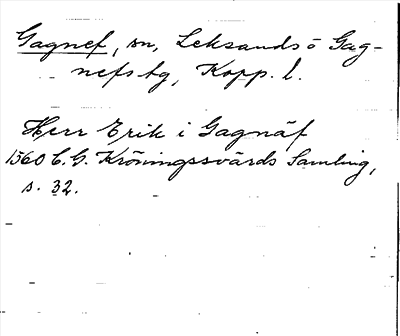 Gagnef, sn, Leksands o Gag-
nefs tg, Kopp. l.
Herr Erik i Gagnäf
1560 C. G. Kröningssvärds Samling,
s. 32.